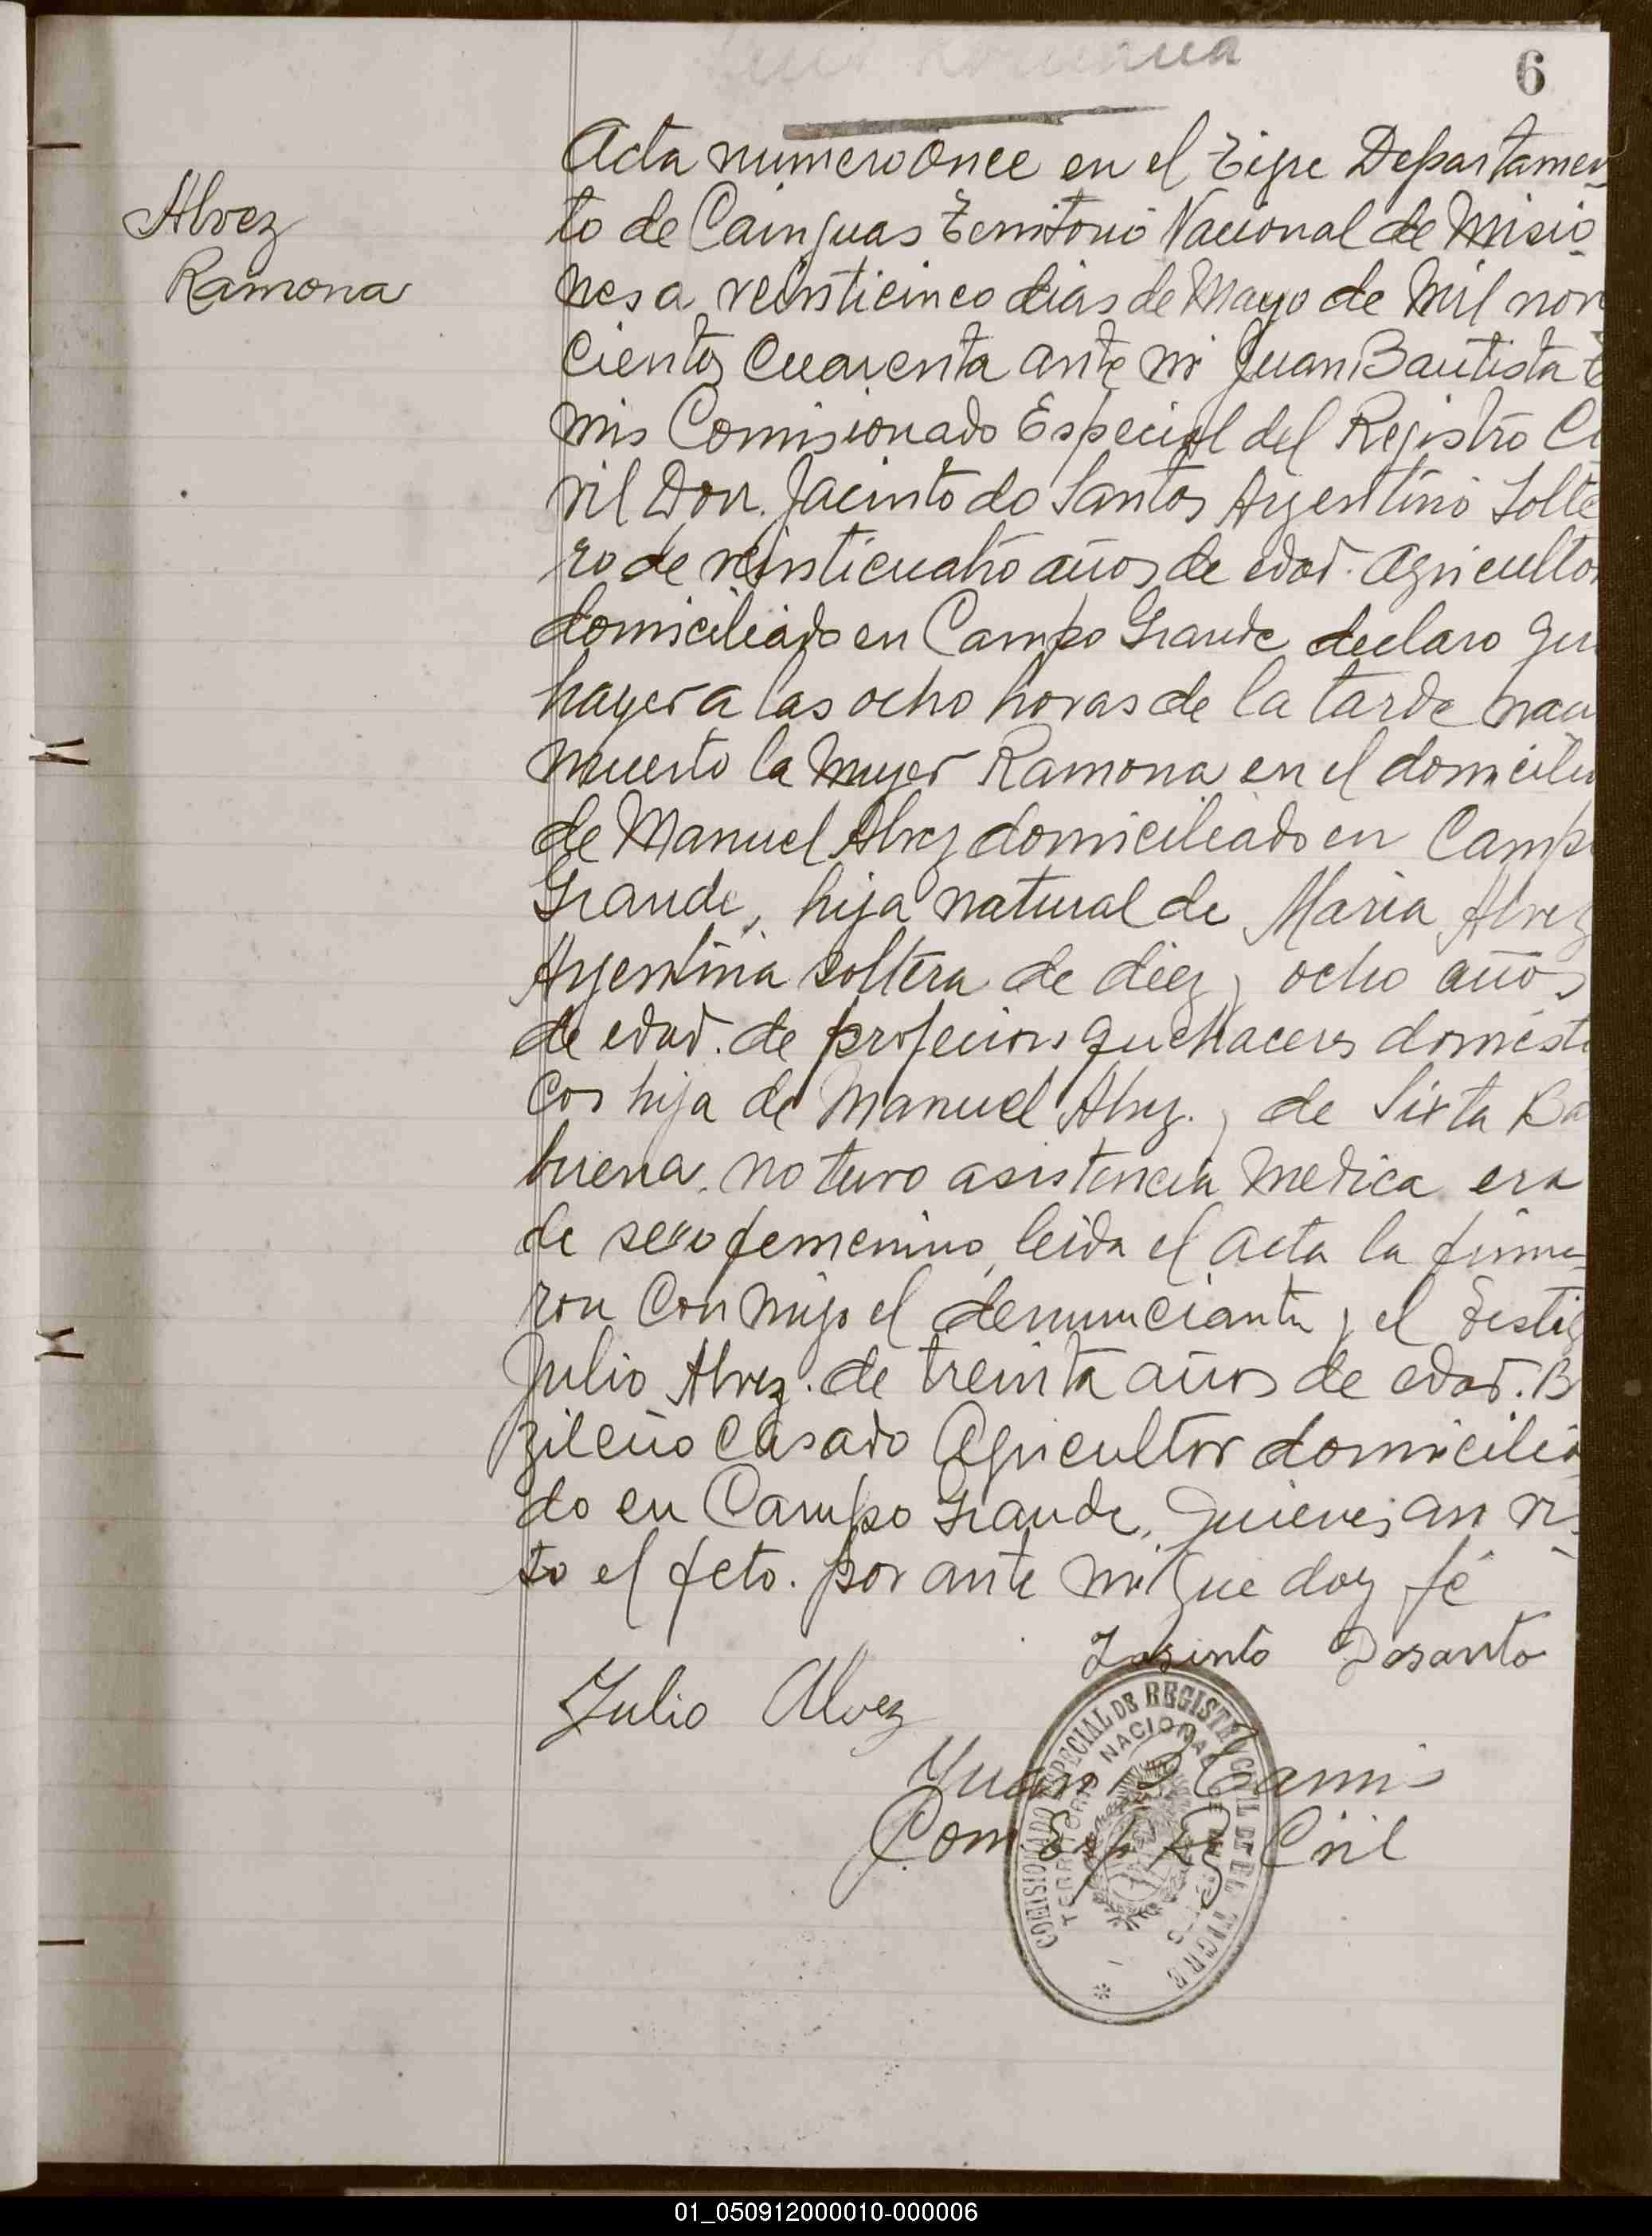 6
Alvez
Ramona
Acta numero Once en el Tigre Departamen
to de Cainguas Territorio Nacional de Misio
nes a veinticinco dias de Mayo de Mil nove
cientos Cuarenta ante mi Juan Bautista
mis Comisionado Especial del Registro Ci
vil Don. Jacinto do Santos Argentino Solte
ro de veinticuatro años de edad. Agricultor
domiciliado en Campo Grande declaro que
hayer a las ocho horas de la tarde naci
muerto la Mujer Ramona en el domicilio
de Manuel Alvez domiciliado en Campo
Grande, hija natural de Maria Alvez
Argentina soltera de diez y ocho años
de edad. de profecion quehaceres domesti
cos hija de Manuel Alvez. y de Sixta Ba
buena. no tuvo asistencia Medica era
de sexo femenino, leida el acta la firma
ron Con migo el denunciante y el Testig
Julio Alvez. de treinta años de edad. B
zileño Casado Agricultor domicilia
do en Campo Grande, quienes an vi
sto el feto. por ante mi que doy fé
Jasinto Dosanto
Julio Alvez
Juan B Tamis
Com Esp R Civil
COMISIONADO ESPECIAL DE REGISTRO CIVIL DE EL TIGRE
TERRITORIO NACIONAL DE MISIONES
01_050912000010-000006